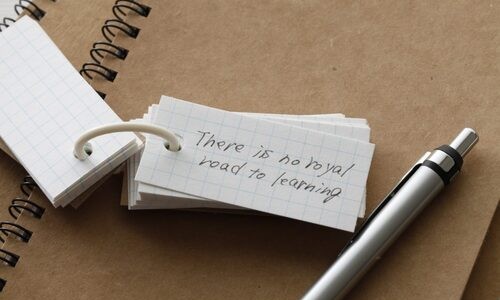 There is no royal
road to learning